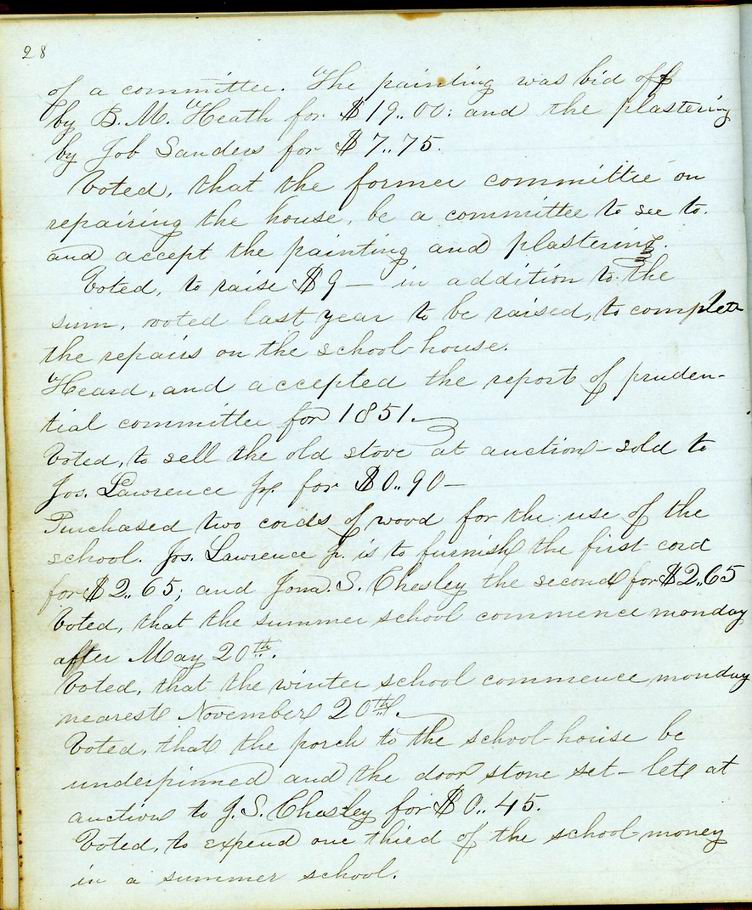 28
of a committee. The painting was bid off
by B. M. Heath for $19..00: and the plastering
by Job Sanders for $7..75.
Voted, that the former committee on
repairing the house, be a committee to see to.
and accept the painting and plastering.
Voted, to raise $9 — in addition to the
sum, voted last year to be raised, to complete
the repairs on the school-house.
Heard, and accepted the report of pruden-
tial committee for 1851.
Voted, to sell the old stove at auction – sold to
Jos. Lawrence Jr. for $0..90 —
Purchased two cords of wood for the use of the
school. Jos. Lawrence Jr. is to furnish the first cord
for $2..65; and Jona. S. Chesley the second for $2..65
Voted, that the summer school commence monday
after May 20th.
Voted, that the winter school commence monday
nearest November 20th.
Voted, that the porch to the school-house be
underpinned and the door stone set – lett at
auction to J. S. Chesley for $0..45.
Voted, to expend one third of the school-money
in a summer school.